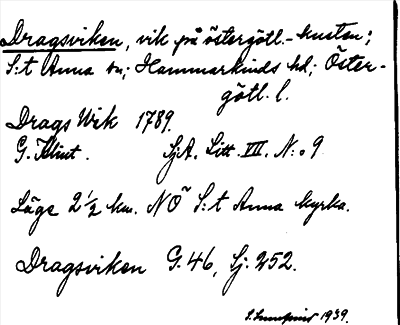 Dragsviken, vik på östergötl.-kusten;
S:t Anna sn; Hammarkinds hd; Öster-
götl. l.
Drags Wik 1789.
G. Klint. SjA. Litt. VII. N:o 9
Läge 2 1/2 km. NÖ S:t Anna kyrka.
Dragsviken G. 46, Sj. 252.
1939.